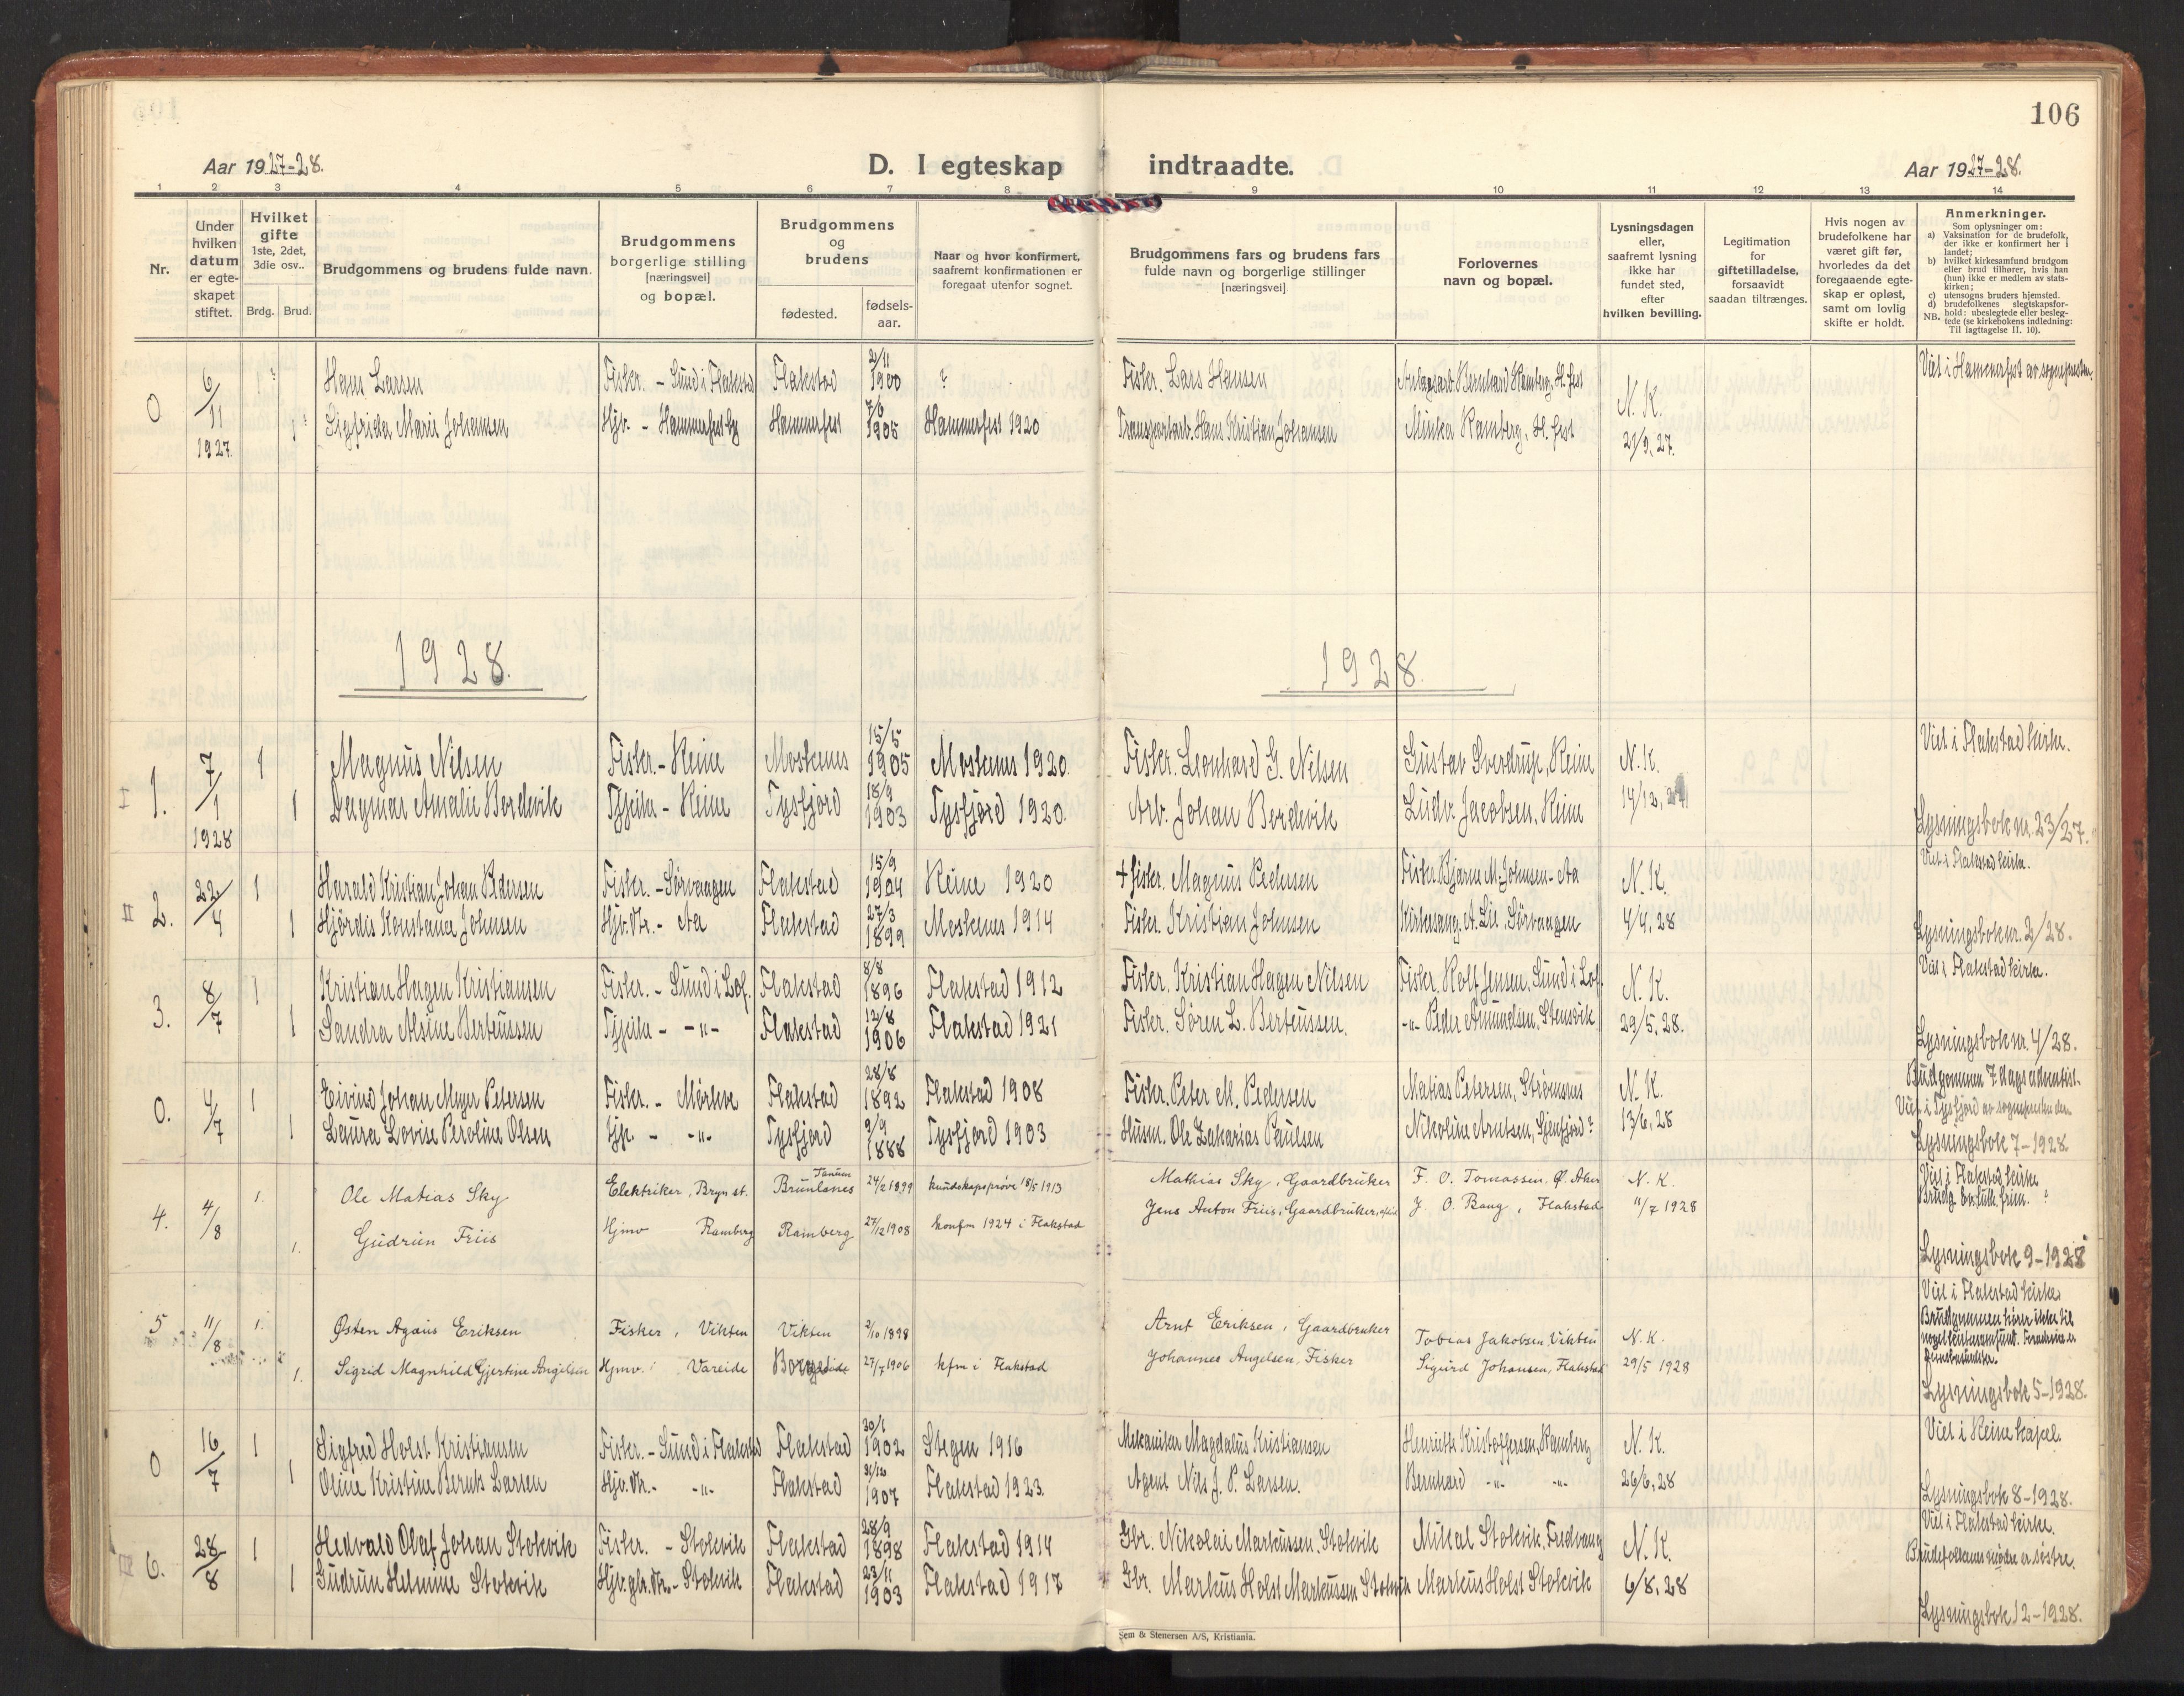 106
Aar 1927-28.
D. I egteskap indtraadte.
Aar 1927-28.
1 2 3 4 5 6 7 8 9 10 11 12 13 14
Nr.
Under
hvilken
datum
er egte-
skapet
stiftet.
Hvilket
gifte
1ste, 2det,
3die osv..
Brdg. Brud.
Brudgommens og brudens fulde navn.
Brudgommens
borgerlige stilling
[næringsvei]
og bopæl.
Brudgommens
og
brudens
fødested.
fødsels-
aar.
Naar og hvor konfirmert,
saafremt konfirmationen er
foregaat utenfor sognet.
Brudgommens fars og brudens fars
fulde navn og borgerlige stillinger
[næringsvei]
Forlovernes
navn og bopæl.
Lysningsdagen
eller,
saafremt lysning
ikke har
fundet sted,
efter
hvilken bevilling.
Legitimation
for
giftetilladelse,
forsaavidt
saadan tiltrænges.
Hvis nogen av
brudefolkene har
været gift før,
hvorledes da det
foregaaende egte-
skap er opløst,
samt om lovlig
skifte er holdt.
Anmerkninger.
Som oplysninger om:
a) Vaksination for de brudefolk,
der ikke er konfirmert her i
landet;
b) hvilket kirkesamfund brudgom
eller brud tilhører, hvis han
(hun) ikke er medlem av stats-
kirken;
c) utensogns bruders hjemsted.
d) brudefolkenes slegtskapsfor-
hold: ubeslegtede eller besleg-
NB. tede (se kirkebokens indledning:
Til Iagttagelse II. 10).
0 6/11 1927 ? Hans Larsen Fisker. - Sund i Flakstad Flakstad 2/11 1900 ? Fisker. Lars Hansen Bernhard Ramberg, H.fest N. K. Viet i Hammerfest av sognepresten.
1? Sigfrida Marie Johansen Hjv. - Hammerfest Hammerfest 7/6 1905 Hammerfest 1920 Transportarb. Hans Kristian Johansen Minka Ramberg, H.fest 21/9, 27.
1928. 1928.
I 1. 7/1 1928 1 Magnus Nilsen Fisker. - Reine Moskenes 15/5 1905 Moskenes 1920. Fisker. Leonhard G. Nilsen Gustav Sverdrup, Reine N. K. Viet i Flakstad kirke.
1 Dagmar Amalie Bordevik Tjpike - Reine Tysfjord 18/9 1903 Tysfjord 1920. Arb. Johan Bordevik Ludv. Jacobsen, Reine 14/12, Lysningsbok nr. 23/27.
II 2. 22/4 1 Harald Kristian Johan Pedersen Fisker. - Sørvaagen Flakstad 15/9 1904 Reine 1920 + fisker. Magnus Pedersen Fisker Bjarne M. Johnsen - Aa N. K. Viet i Flakstad kirke.
1 Hjørdis Konstance Johnsen Hjv. dtr. - Aa Flakstad 27/3 1899 Moskenes 1914 Fisker. Kristian Johnsen Kirkesang. A. Lie, Sørvaagen 4/4, 28 Lysningsbok nr. 2/28.
3. 8/7 1 Kristian Hagen Kristiansen Fisker. - Sund i Lof. Flakstad 8/8 1896 Flakstad 1912 Fisker. Kristian Hagen Nilsen Fisker. Rolf Jensen, Sund i Lof. N. K. Viet i Flakstad kirke.
1 Sandra Alvine Berteussen Tjpike - -"- Flakstad 12/8 1906 Flakstad 1921 Fisker. Søren L. Berteussen. -"- Peder Amundsen, Stensvik 29/5, 28. Lysningsbok nr. 4/28.
0. 4/7 1 Eivind Johan Meyer Petersen Fisker. - Mørkve Flakstad 28/8 1892 Flakstad 1908 Fisker. Peter M. Pedersen Matias Petersen, Strømsnes N. K. Brudgommen 7. dags adventist.
Viet i Tysfjord av sognepresten der.
1 Laura Lovise Peroline Olsen Tjp. - -"- Tysfjord 9/9 1888 Tysfjord 1903 Husm. Ole Zakarias Paulsen Nikoline Arntsen, ? 13/6, 28 Lysningsbok 7-1928.
4. 4/8 1. Ole Matias Sky Elektriker, Bryn st. Tanum Brunlanes 24/2 1899 kundskapsprøve 18/5 1913 Mathias Sky, Gaardbruker F. O. Tomassen. Ø. Aker N. K. Viet i Flakstad kirke
Brudg. ev. luth. frim. ?
1. Gudrun Friis Hjmv Ramberg Ramberg 27/12 1908 konfm 1924 i Flakstad Jens Anton Friis, Gaardbruker, J. O. Bang, Flakstad 11/7 1928 Lysningsbok 9-1928
5 11/8 1. Østen Agæus Eriksen Fisker, Vikten Vikten 2/10 1898 Arnt Eriksen, Gaardbruker Tobias Jakobsen Vikten N. K. Viet i Flakstad kirke
Brudgommen hører ikke til
noget kirkesamfund.
1. Sigrid Magnhild Gjertine Angelsen Hjmv. Vareide 27/7 1906 kfm i Flakstad Johannes Angelsen, Fisker Sigurd Johansen, Flakstad 29/5 1928 Lysningsbok 5-1928.
0 16/7 1 Sigfred Holst Kristiansen Fisker. - Sund i Flakstad Flakstad 30/1 1902 Stegen 1916 Mekaniker Magdalus Kristiansen Henriette Kristoffersen, Ramberg N. K. Viet i Reine kapel.
1 Oline Kristine Larsen Hjv. dtr. - -"- Flakstad 1907 Flakstad 1923. Agent Nils J. P. Larsen. Bernhard -"- -"- 26/6, 28 Lysningsbok 8-1928.
6. 28/8 1 Hedvald Olaf Johan Stokvik Fisker. - Stokvik Flakstad 28/9 1898 Flakstad 1914 Gbr. Nikolai Markussen, Stokvik Mikal Stokvik, Fredvang N. K. Viet i Flakstad kirke.
Brudefolkenes mødre er søstre.
1 Gudrun Helmine Stokvik Hjv. gbr. dtr. - Stokvik Flakstad 23/11 1903 Flakstad 1917 Gbr. Markus Holst Markussen Stokvik Markus Holst Stokvik 6/8, 28 Lysningsbok 12-1928.
Sem & Stenersen A/S, Kristiania.